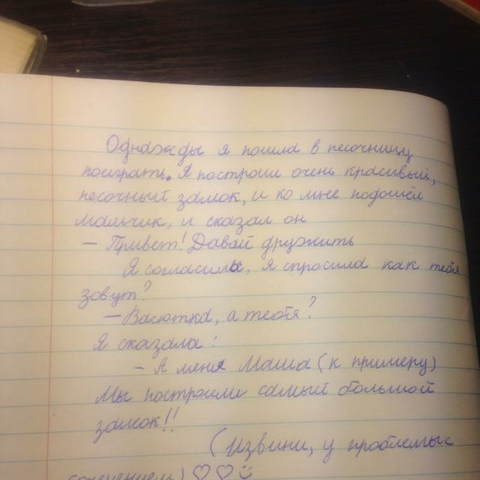 Однажды я пошла в песочницу
поиграть. Я построи очень красивый,
песочный замок, и ко мне подошёл
мальчик, и сказал он
– Привет! Давай дружить
Я согласила, я спросила как тебя
зовут?
– Васютка, а тебя?
Я сказала:
– А меня Маша (к примеру)
Мы построили самый большой
замок!!
(Извини, у проблемыс
сочением) ♡♡☺